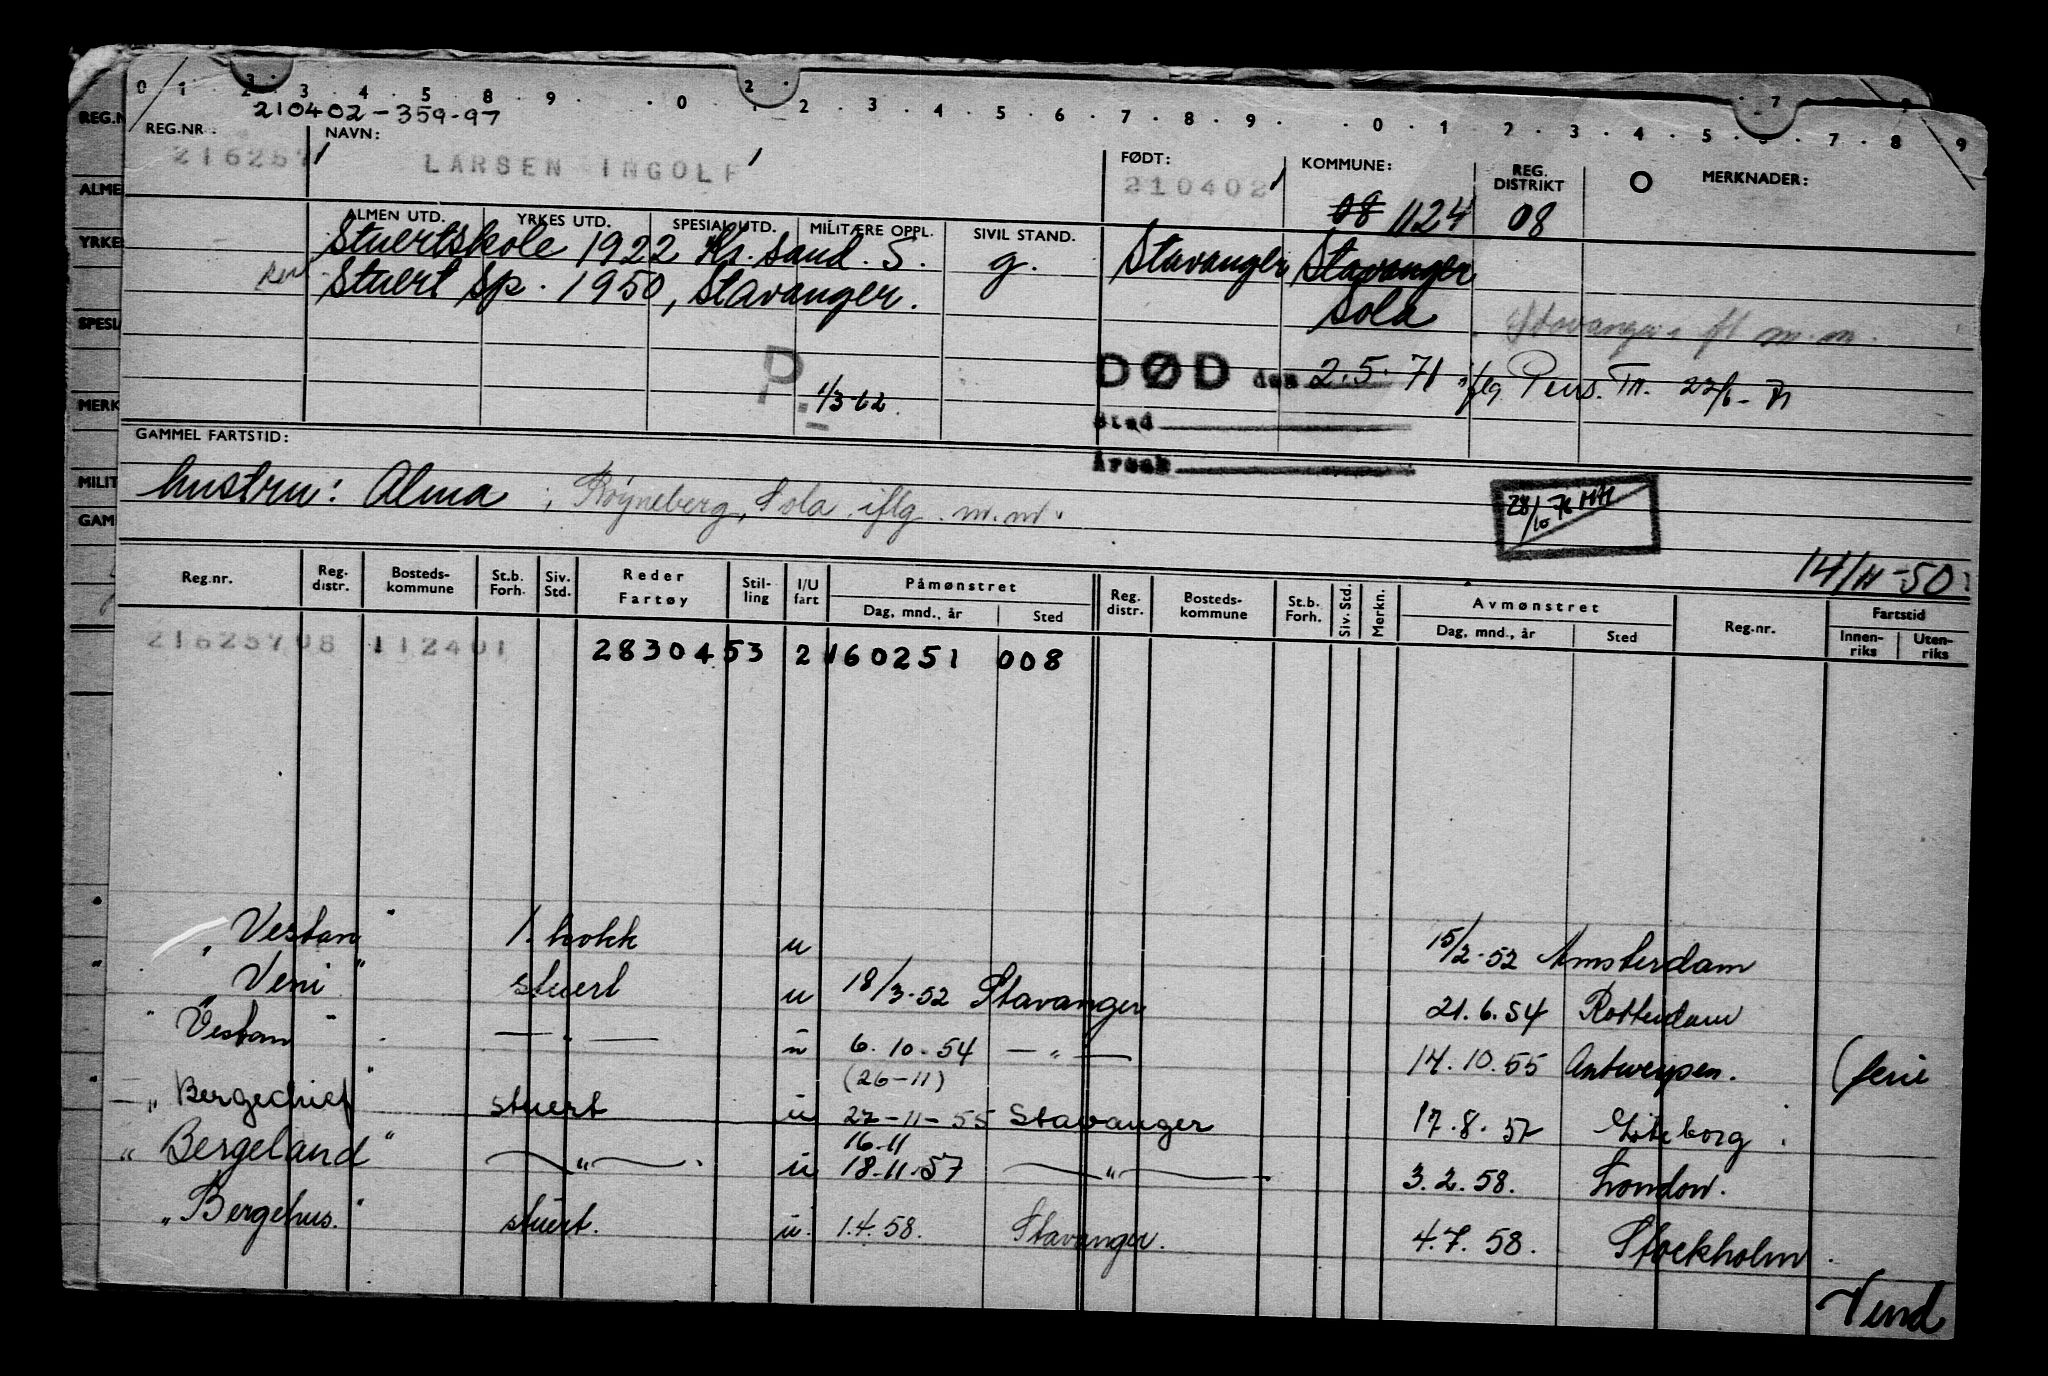 0 1 2 3 4 5 8 9 0 2 2 3 4 5 6 7 8 9 0 1 2 3 4 5 6 7 8 9
210402-359-97
REG.NR. NAVN: FØDT: KOMMUNE: REG. DISTRIKT MERKNADER:
216257 LARSEN INGOLF 210402 08 1124 08
ALMEN UTD. YRKES UTD. SPESIAL UTD. MILITÆRE OPPL. SIVIL STAND.
Stuertskole 1922 Kr.sand. S. g. Stavanger Stavanger
Stuert sp. 1950, Stavanger. Sola
Stavanger ifl m.m.
P. 1/3-62
DØD den 2.5.71 iflg Pens. Tr. 22/6-71
Sted
Årsak
GAMMEL FARTSTID:
hustru: Alma ; Røyneberg, Sola iflg. m.m.
28/10 76 HH
14/11-50
Reg.nr. Reg. distr. Bosteds-kommune St.b. Forh. Siv. Std. Reder Fartøy Stil-ling I/U fart Påmønstret Dag, mnd., år Sted Reg. distr. Bosteds-kommune St.b. Forh. Siv. Std. Merkn. Avmønstret Dag, mnd., år Sted Reg.nr. Fartstid Innen-riks Uten-riks
216257 08 112401 2830453 2 160251 008
"Vestan" 1. kokk u 15/2-52 Amsterdam
"Veni" stuert u 18/3-52 Stavanger 21.6.54 Rotterdam
"Vestan" —"— u 6.10.54 —"— 14.10.55 Antwerpen. (ferie
(26-11)
"Bergechief" stuert u 27-11-55 Stavanger 17.8.57 Göteborg.
16.11
"Bergeland" —"— u 18.11.57 —"— 3.2.58. London.
"Bergehus." stuert. u. 1.4.58. Stavanger. 4.7.58. Stockholm.
Vend